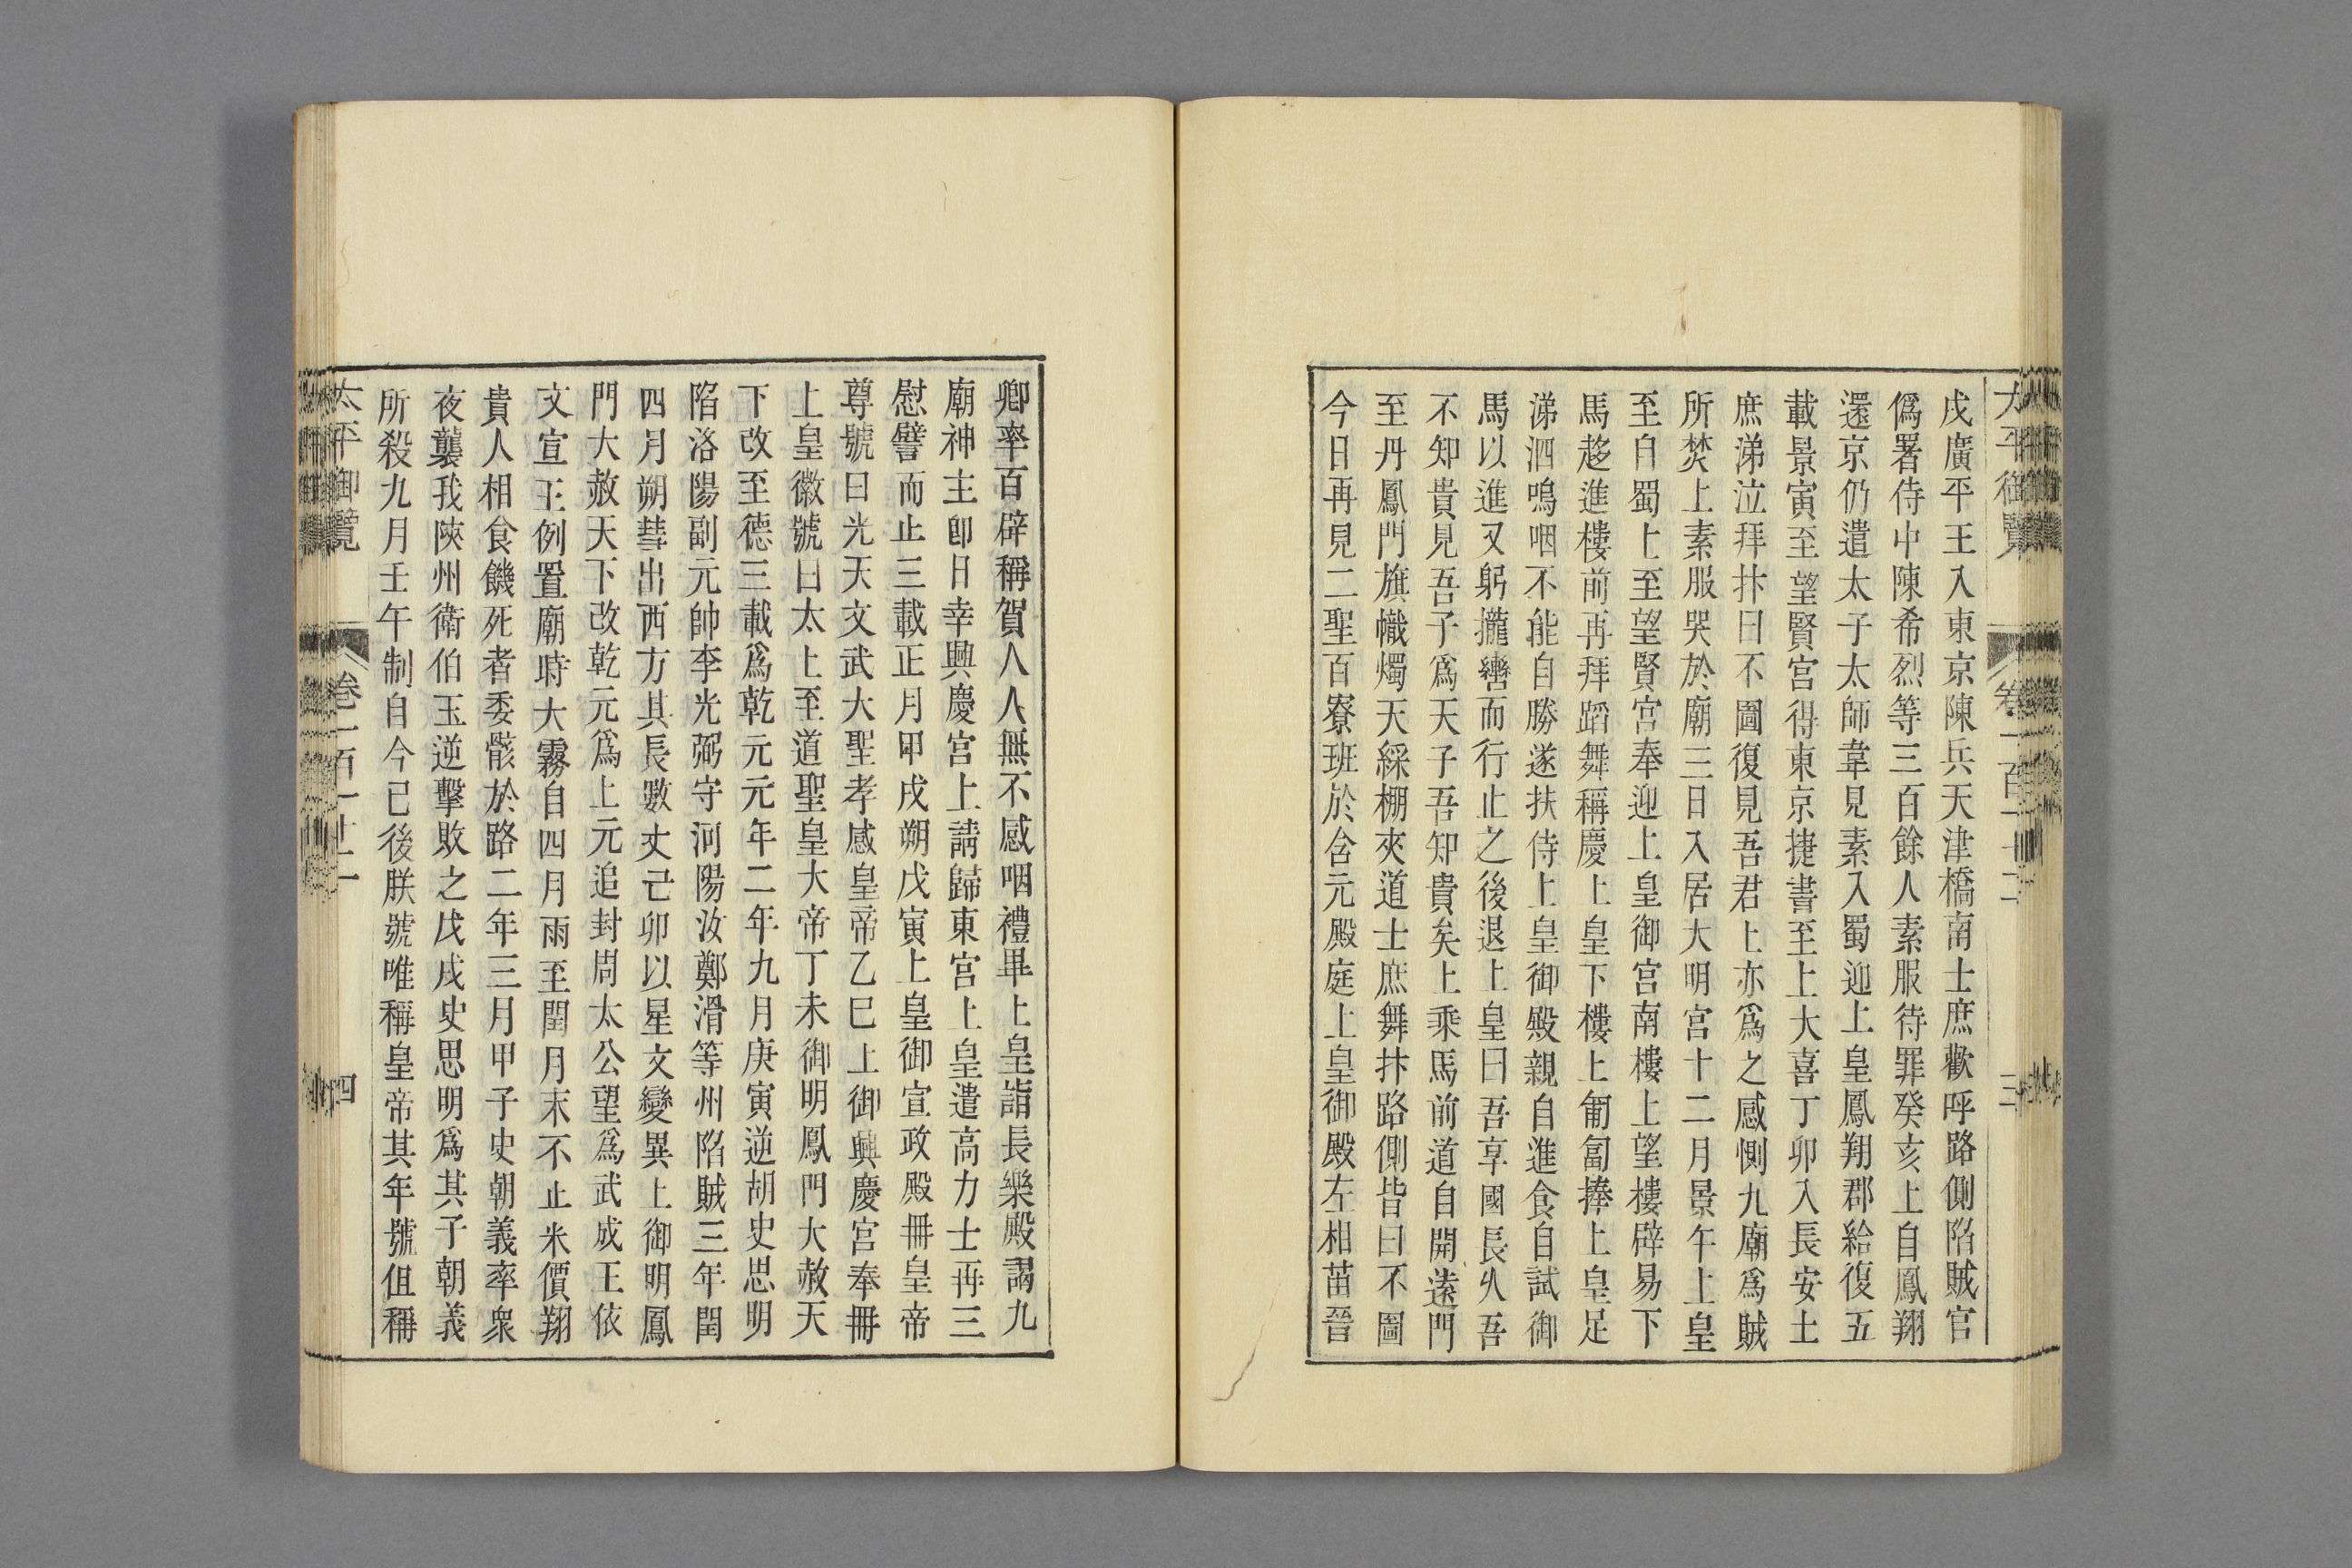 太平御覽 卷一百一十二 三
戌廣平王入東京陳兵天津橋南士庶歡呼路側陷賊官
僞署侍中陳希烈等三百餘人素服待罪癸亥上自鳳翔
還京仍遣太子太師韋見素入蜀迎上皇鳳翔郡給復五
載景寅至望賢宮得東京捷書至上大喜丁卯入長安士
庶涕泣拜抃曰不圖復見吾君上亦爲之感惻九廟爲賊
所焚上素服哭於廟三日入居大明宮十二月景午上皇
至自蜀上至望賢宮奉迎上皇御宮南樓上望樓辟易下
馬趍進樓前再拜蹈舞稱慶上皇下樓上匍匐捧上皇足
涕泗嗚咽不能自勝遂扶侍上皇御殿親自進食自試御
馬以進又躬攏轡而行止之後退上皇曰吾享國長久吾
不知貴見吾子爲天子吾知貴矣上乘馬前道自開遠門
至丹鳳門旗幟燭天綵棚夾道士庶舞抃路側皆曰不圖
今日再見二聖百寮班於含元殿庭上皇御殿左相苗晉
卿率百辟稱賀人人無不感咽禮畢上皇詣長樂殿謁九
廟神主卽日幸興慶宮上請歸東宮上皇遣高力士再三
慰譬而止三載正月甲戌朔戊寅上皇御宣政殿冊皇帝
尊號曰光天文武大聖孝感皇帝乙巳上御興慶宮奉冊
上皇徽號曰太上至道聖皇大帝丁未御明鳳門大赦天
下改至德三載爲乾元元年二年九月庚寅逆胡史思明
陷洛陽副元帥李光弼守河陽汝鄭滑等州陷賊三年閏
四月朔彗出西方其長數丈己卯以星文變異上御明鳳
門大赦天下改乾元爲上元追封周太公望爲武成王依
文宣王例置廟時大霧自四月雨至閏月末不止米價翔
貴人相食餓死者委骸於路二年三月甲子史朝義率衆
夜襲我陝州衛伯玉逆擊敗之戊戌史思明爲其子朝義
所殺九月壬午制自今已後朕號唯稱皇帝其年號但稱
太平御覽 卷一百一十二 四